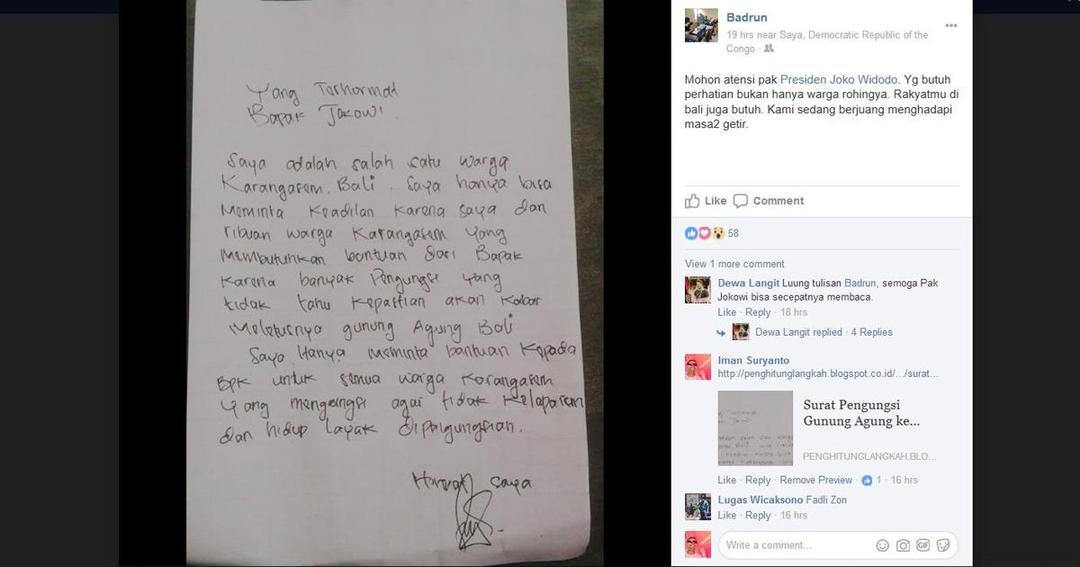 Yang Terhormat
Bapak Jokowi
Saya adalah salah satu warga
Karangasem. Bali. Saya hanya bisa
Meminta Keadilan Karena saya dan
ribuan warga Karangasem yang
Membutuhkan bantuan dari Bapak
Karena banyak Pengungsi yang
tidak tahu Kepastian akan Kabar
Meletusnya gunung Agung Bali
Saya Hanya meminta bantuan Kepada
BPK untuk semua warga Karangasem
yang mengungsi agar tidak Kelaparan
dan hidup layak dipengungsian.
Hormat saya
Badrun
19 hrs near Saya, Democratic Republic of the
Congo ·
Mohon atensi pak Presiden Joko Widodo. Yg butuh
perhatian bukan hanya warga rohingya. Rakyatmu di
bali juga butuh. Kami sedang berjuang menghadapi
masa2 getir.
Like Comment
58
View 1 more comment
Dewa Langit Luung tulisan Badrun, semoga Pak
Jokowi bisa secepatnya membaca.
Like · Reply · 18 hrs
Dewa Langit replied · 4 Replies
Iman Suryanto
http://penghitunglangkah.blogspot.co.id/.../surat...
Surat Pengungsi
Gunung Agung ke...
PENGHITUNGLANGKAH.BLO...
Like · Reply · Remove Preview · 1 · 16 hrs
Lugas Wicaksono Fadli Zon
Like · Reply · 16 hrs
Write a comment...
GIF